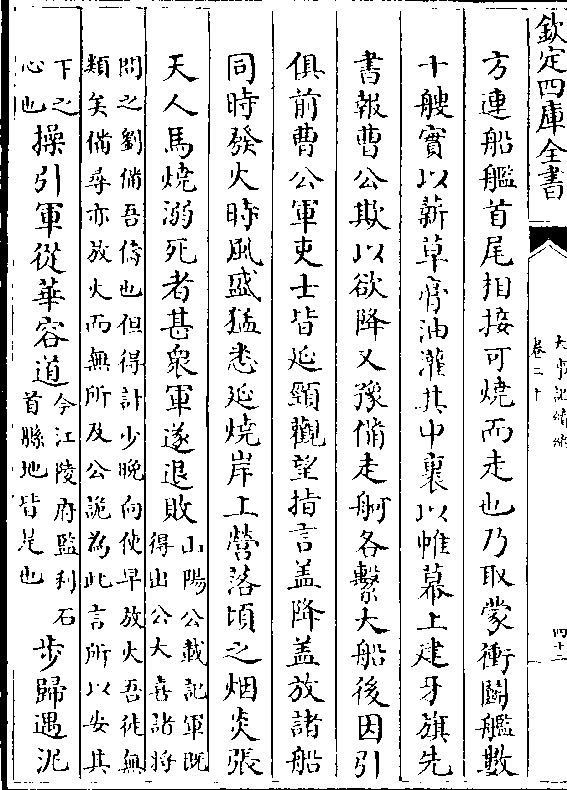 欽定四庫全書
大事記續編
卷二十
四十二
方連船艦首尾相接可燒而走也乃取蒙衝鬭艦數
十艘實以薪草膏油灌其中裹以帷幕上建牙旗先
書報曹公欺以欲降又豫備走舸各繫大船後因引
俱前曹公軍吏士皆延頸觀望指言盖降盖放諸船
同時發火時風盛猛悉延燒岸上營落頃之烟炎張
天人馬燒溺死者甚衆軍遂退敗山陽公載記軍既
得出公大喜諸將
問之劉備吾儔也但得計少晚向使早放火吾徒無
類矣備尋亦放火而無所及公詭為此言所以安其
下之
心也操引軍從華容道今江陵府監利石
首縣地皆是也步歸遇泥